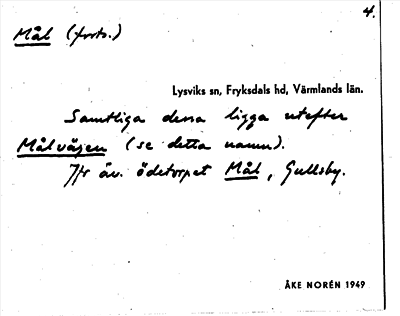 4.
Mål (forts.)
Lysviks sn, Fryksdals hd, Värmlands län.
Samtliga dessa ligga utefter
Målvägen (se detta namn).
Jfr äv. ödetorpet Mål, Gullsby.
ÅKE NORÉN 1949